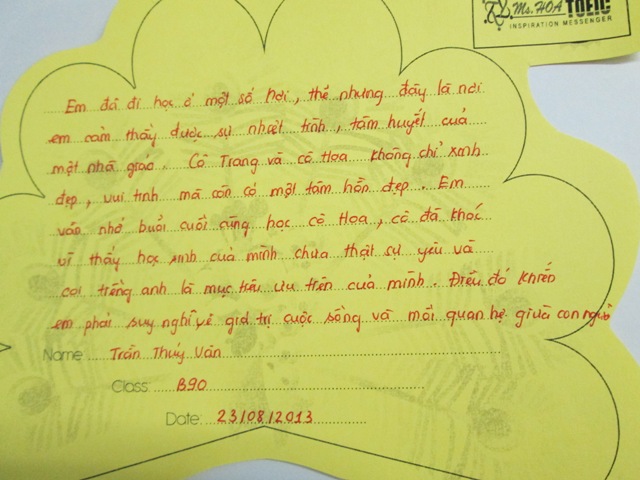 Ms. HOA TOEIC
INSPIRATION MESSENGER
Em đã đi học ở một số nơi, thế nhưng đây là nơi
em cảm thấy được sự nhiệt tình, tâm huyết của
một nhà giáo. Cô Trang và cô Hoa không chỉ xinh
đẹp, vui tính mà còn có một tâm hồn đẹp. Em
vẫn nhớ buổi cuối cùng học cô Hoa, cô đã khóc
vì thấy học sinh của mình chưa thật sự yêu và
coi tiếng anh là mục tiêu ưu tiên của mình. Điều đó khiến
em phải suy nghĩ về giá trị cuộc sống và mối quan hệ giữa con người
Name Trần Thúy Vân
Class: B90
Date: 23/08/2013